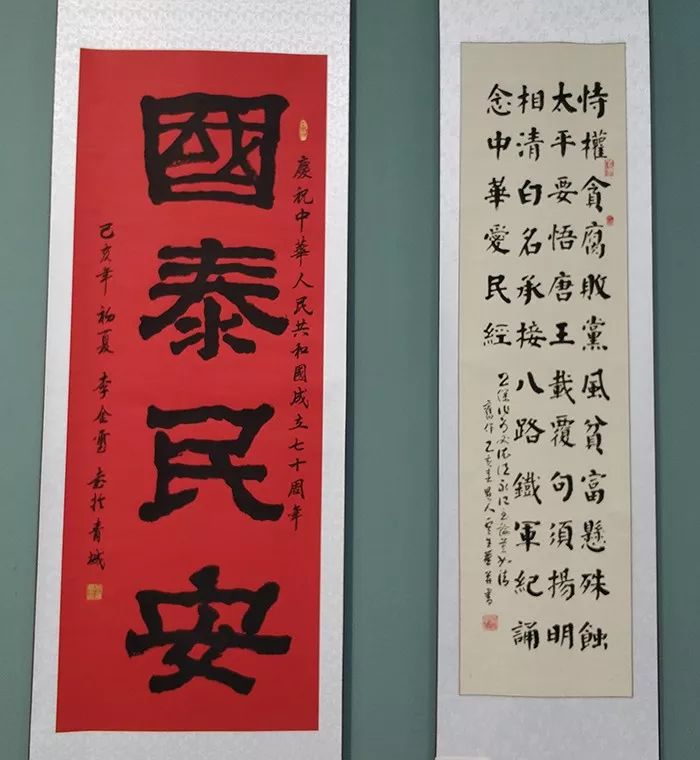 慶祝中華人民共和國成立七十周年
國泰民安
己亥年 初夏 李金 書於青城
恃權貪腐敗黨風貧富懸殊蝕
太平要悟唐王載覆句須揚明
相清白名承接八路鐵軍紀誦
念中華愛民經